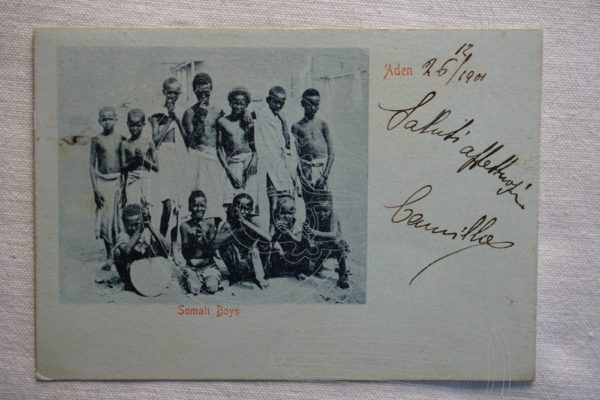 Aden 26/12 1901
Saluti affettuosi
Camilla
Somali Boys